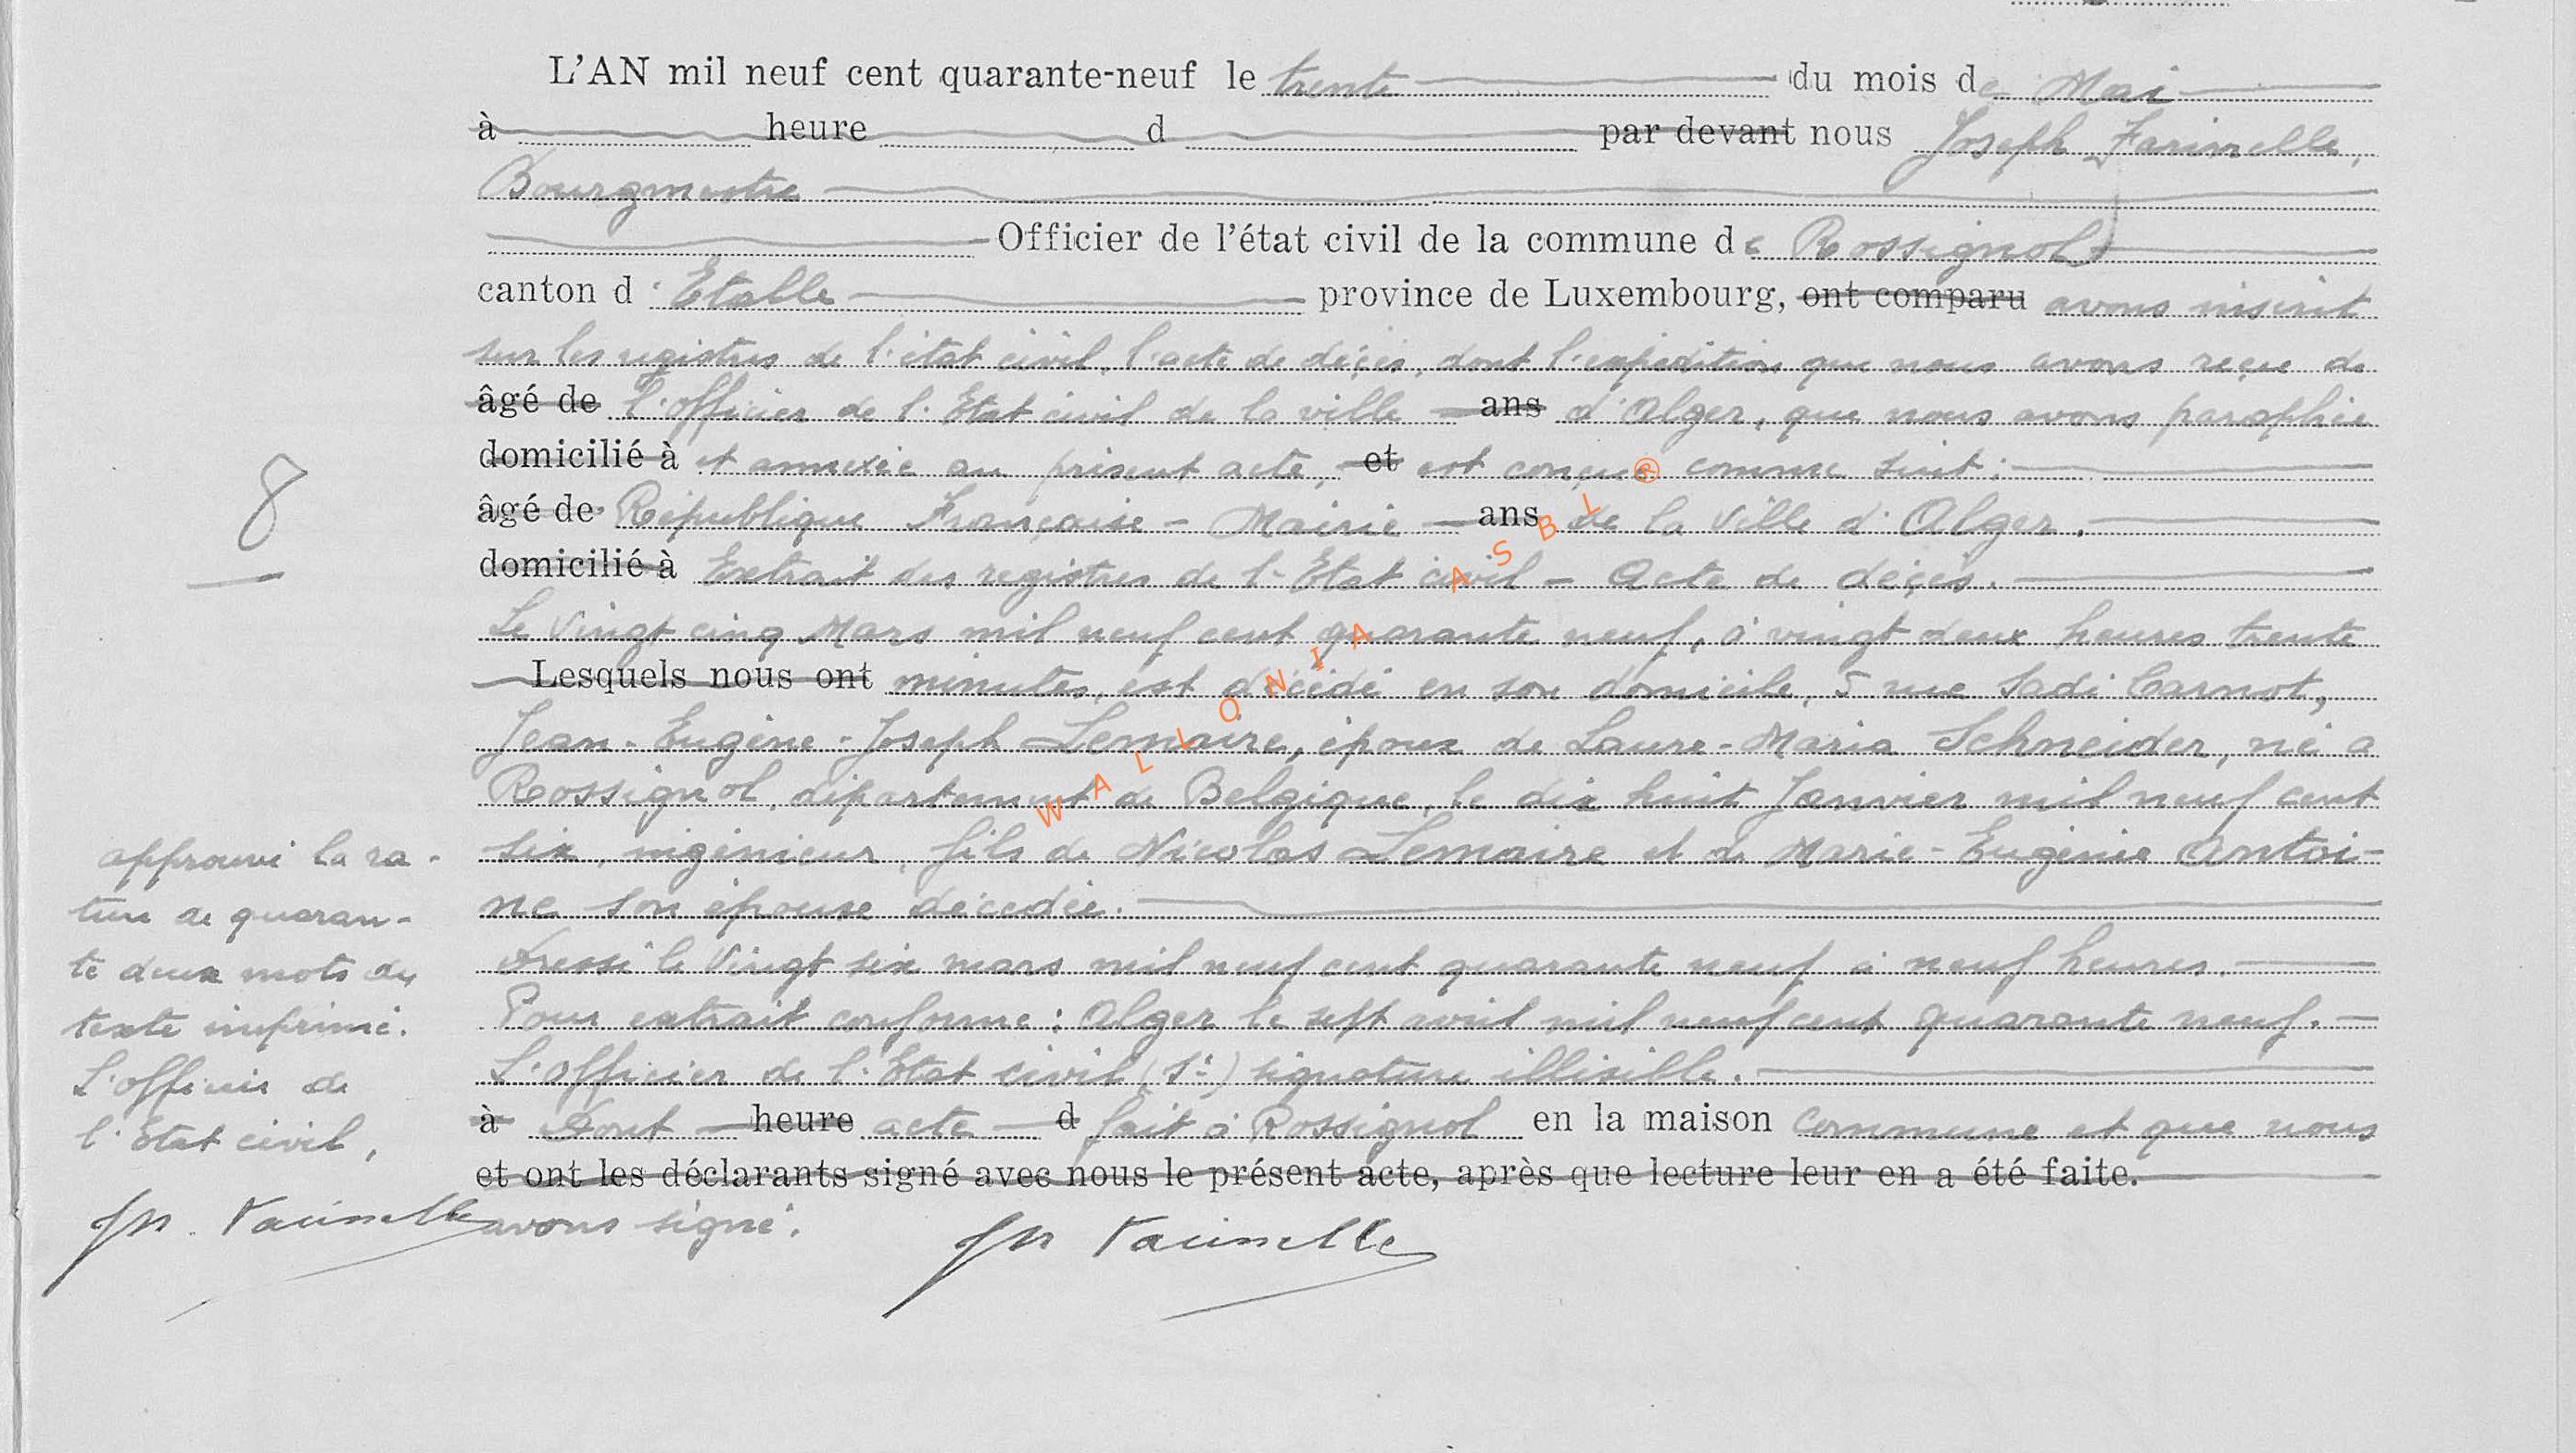 L'AN mil neuf cent quarante-neuf le trente du mois de Mai
à heure d par devant nous Joseph Farinelle,
Bourgmestre
Officier de l'état civil de la commune de Rossignol
canton d'Etalle province de Luxembourg, ont comparu avons inscrit
sur les registres de l'état civil, l'acte de décès, dont l'expédition que nous avons reçue de
âgé de l'officier de l'Etat civil de la ville ans d'Alger, que nous avons paraphée
domicilié à et annexée au présent acte, et est conçue comme suit :
âgé de République Française - Mairie - ans de la Ville d'Alger.
domicilié à Extrait des registres de l'Etat civil - Acte de décès.
Le Vingt cinq Mars mil neuf cent quarante neuf, à vingt deux heures trente
Lesquels nous ont minutes, est décédé en son domicile, 5 rue Sadi Carnot,
Jean-Eugène-Joseph Lemaire, époux de Laure-Maria Schneider, né à
Rossignol, département de Belgique, le dix huit Janvier mil neuf cent
six, ingénieur, fils de Nicolas Lemaire et de Marie-Eugénie Antoi-
ne son épouse décédée.
Dressé le Vingt six mars mil neuf cent quarante neuf à neuf heures.
Pour extrait conforme : Alger le sept avril mil neuf cent quarante neuf.
L'officier de l'Etat civil (Sé) signature illisible.
à Dont heure acte d fait à Rossignol en la maison Commune et que nous
et ont les déclarants signé avec nous le présent acte, après que lecture leur en a été faite.
avons signé.
Jh Farinelle
8
approuvé la ra-
ture de quaran-
te deux mots du
texte imprimé.
L'officier de
l'Etat civil,
Jh. Farinelle
WALLONIA ASBL ®